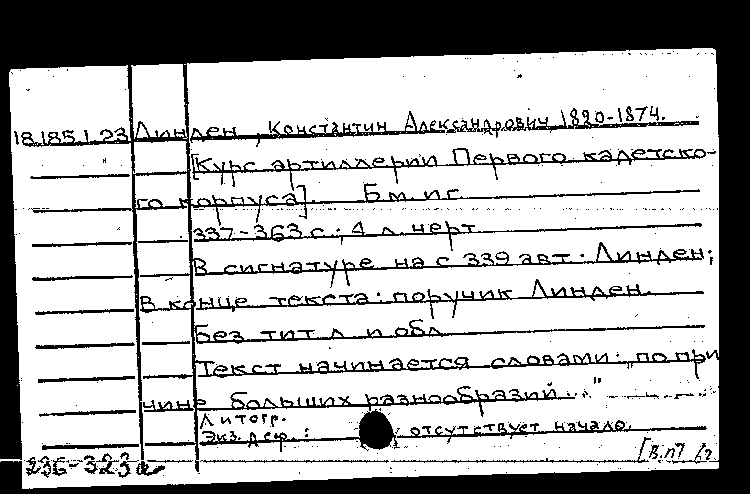 18.185.1.23 Линден, Константин Александрович, 1820-1874.
[Курс артиллерии Первого кадетско-
го корпуса]. Б.м. и г.
337-363 с.; 4 л. черт.
В сигнатуре на с 339 авт.: Линден;
в конце текста: поручик Линден.
Без тит. л. и обл.
Текст начинается словами: "по при
чине больших разнообразий..."
Литогр.
Экз. деф.: отсутствует начало.
236-323а